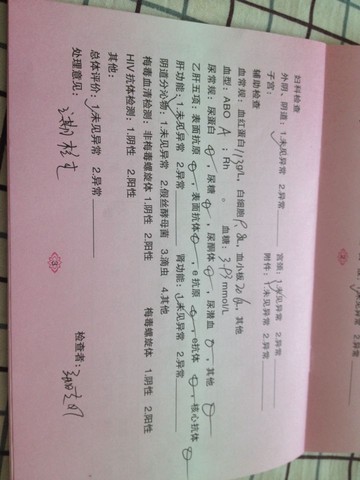 妇科检查
外阴、阴道: 1.未见异常 2.异常 宫颈: 1.未见异常 2.异常
子宫: 附件: 1.未见异常 2.异常
辅助检查
血常规: 血红蛋白 g/L, 白细胞 血小板 其他
血型: ABO A ; Rh 。 血糖: mmol/L
尿常规: 尿蛋白 , 尿糖 , 尿酮体 , 尿潜血 , 其他
乙肝五项: 表面抗原 , 表面抗体 , e抗原 , e抗体 , 核心抗体
肝功能: 1.未见异常 2.异常 肾功能: 1.未见异常 2.异常
阴道分泌物: 1.未见异常 2.假丝酵母菌 3.滴虫 4.其他
梅毒血清检测: 非梅毒螺旋体 1.阴性 2.阳性 梅毒螺旋体 1.阴性 2.阳性
HIV抗体检测: 1.阴性 2.阳性
其他:
总体评价: 1.未见异常 2.异常
处理意见: 定期检查
检查者:
3